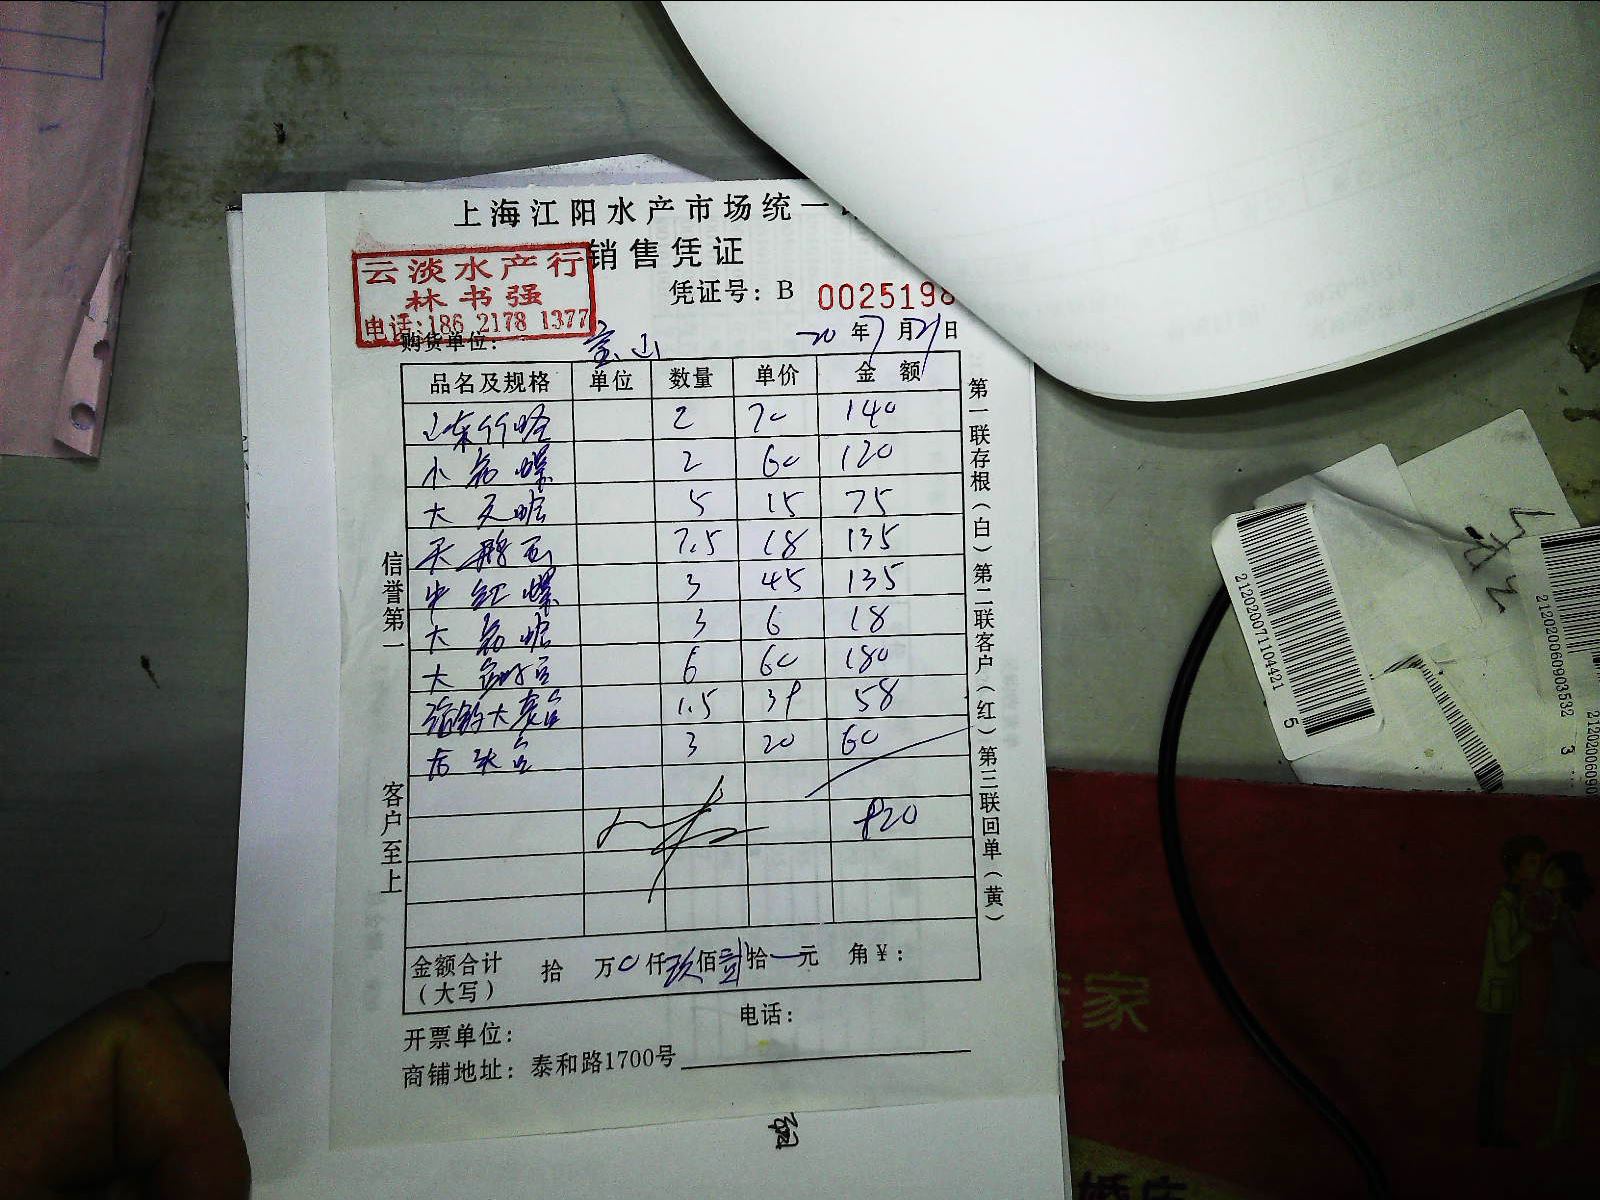 上海江阳水产市场统一
销售凭证
云淡水产行
林书强
电话:186 2178 1377
凭证号: B 0025198
购货单位: 宝山 20 年 7 月 21 日
品名及规格 单位 数量 单价 金额
山东竹蛏 2 70 140
小 螺 2 60 120
大 元蛤 5 15 75
天鹅蛋 7.5 18 135
中 红 螺 3 45 135
大 蛤 3 6 18
大 6 60 180
大 1.5 39 58
3 20 60
920
金额合计 拾 万 0 仟 玖 佰 贰 拾 一 元 角 ¥:
(大写)
开票单位: 电话:
商铺地址: 泰和路1700号
信誉第一
客户至上
第一联存根(白)第二联客户(红)第三联回单(黄)
2120200711044421
5
2120202060903532
3
家